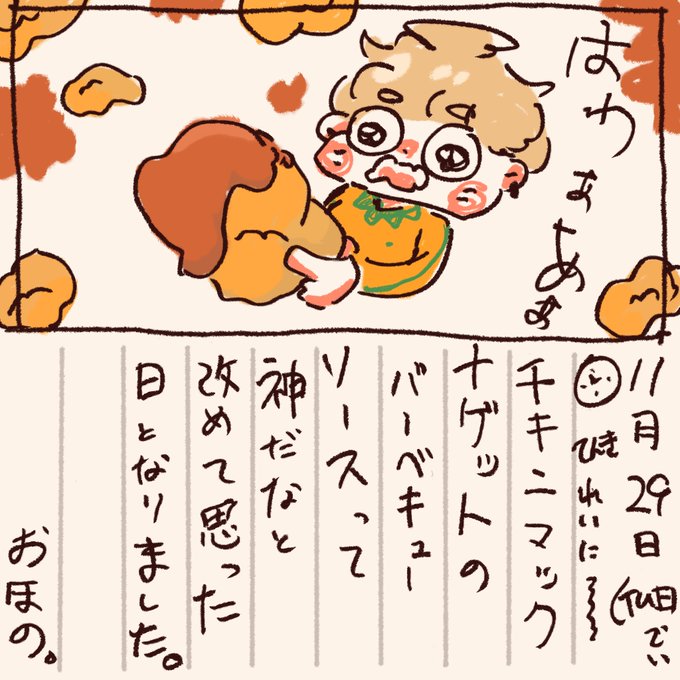 はわぁあぁ
11月29日
れいに〜〜
チキンマック
ナゲットの
バーベキュー
ソースって
神だなと
改めて思った
日となりました。
おほの。